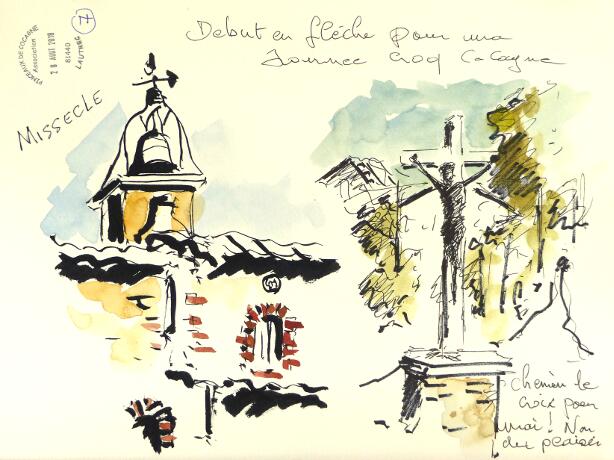 PINCEAUX DE COCAGNE
Association
28 AOUT 2018
81440
LAUTREC
7
Debut en flêche pour une
Journee Croq Cocagne
MISSECLE
Chemin de
croix pour
moi! Non
du plaisir